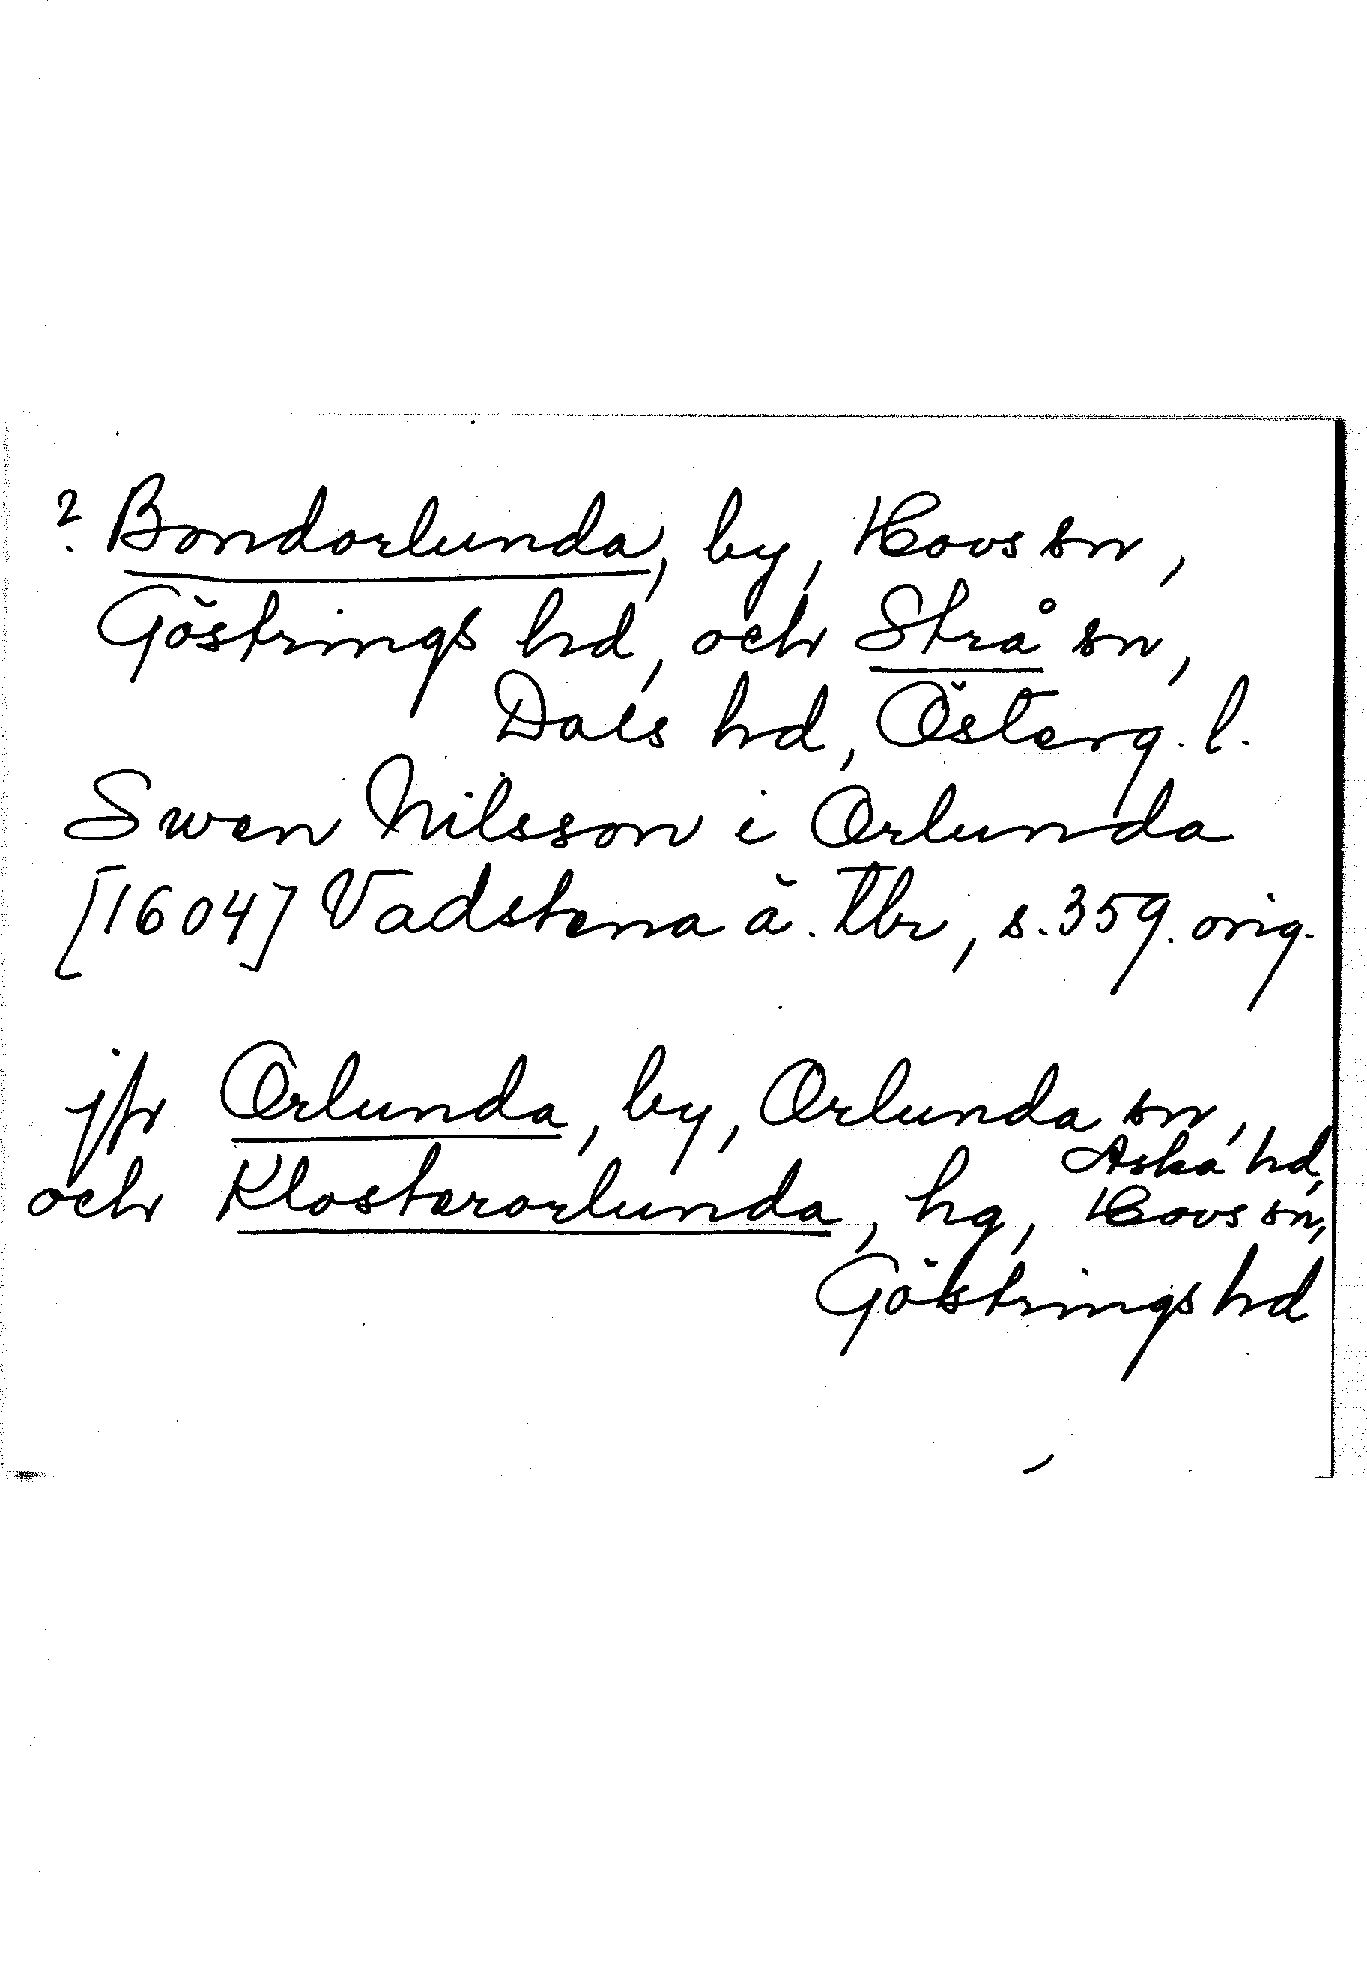 ? Bondorlunda, by, Hovs sn,
Göstrings hd, och Strå sn,
Dals hd, Österg. l.
Swen Nilsson i Orlunda
[1604] Vadstena ä. tbr, s. 359. orig.
jfr Orlunda, by, Orlunda sn,
Aska hd,
och Klosterorlunda, hg, Hovs sn,
Göstrings hd